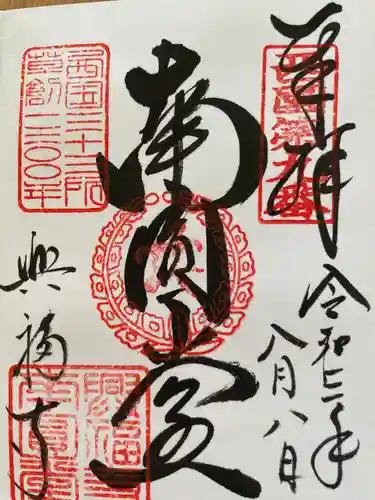 奉拝
西国第九番
令和二年
八月八日
南円堂
西国三十三所
草創一三〇〇年
興福寺